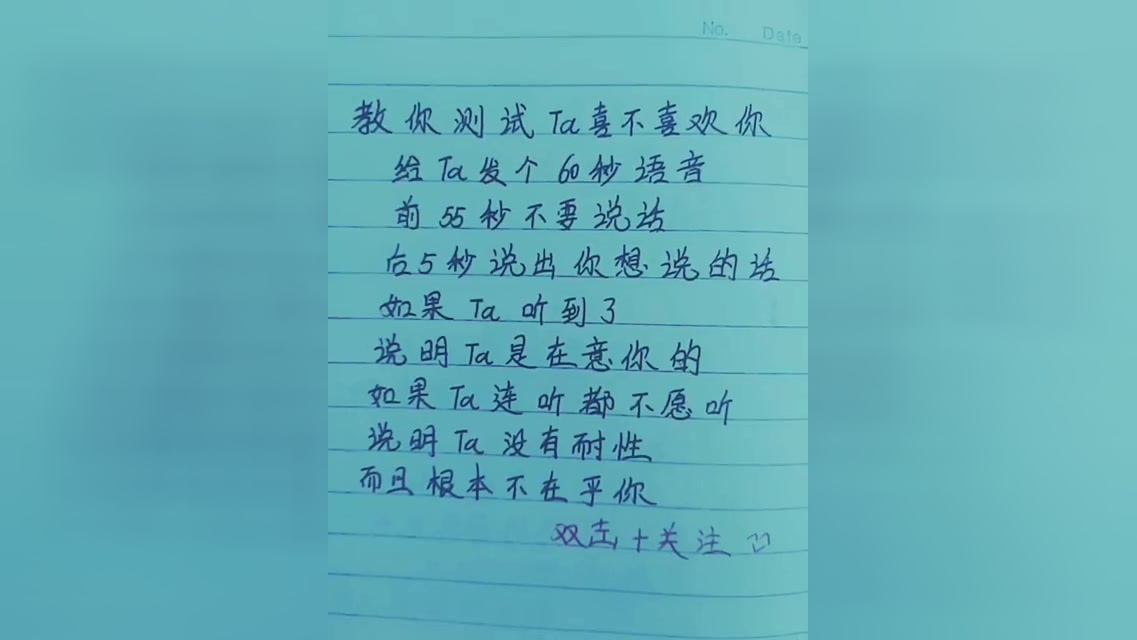 No. Date
教你测试Ta喜不喜欢你
给Ta发个60秒语音
前55秒不要说话
后5秒说出你想说的话
如果Ta听到了
说明Ta是在意你的
如果Ta连听都不愿听
说明Ta没有耐性
而且根本不在乎你
双击+关注